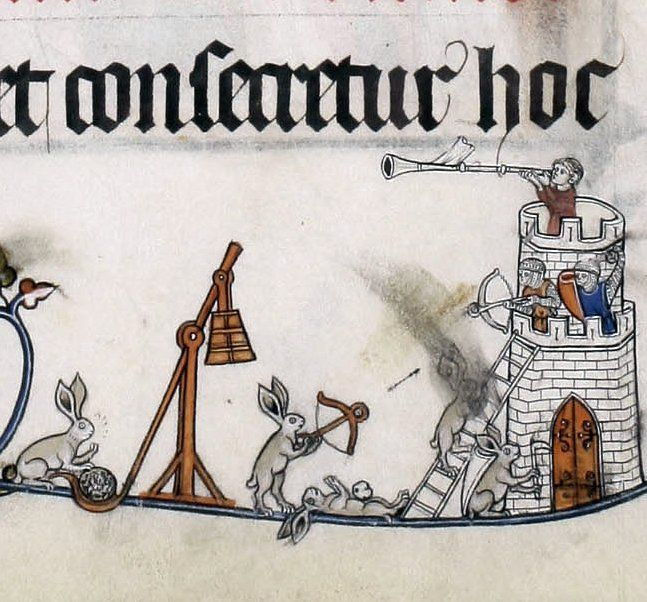 et consecretur hoc